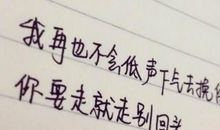 我再也不会低声下气去挽
你要走就走别回